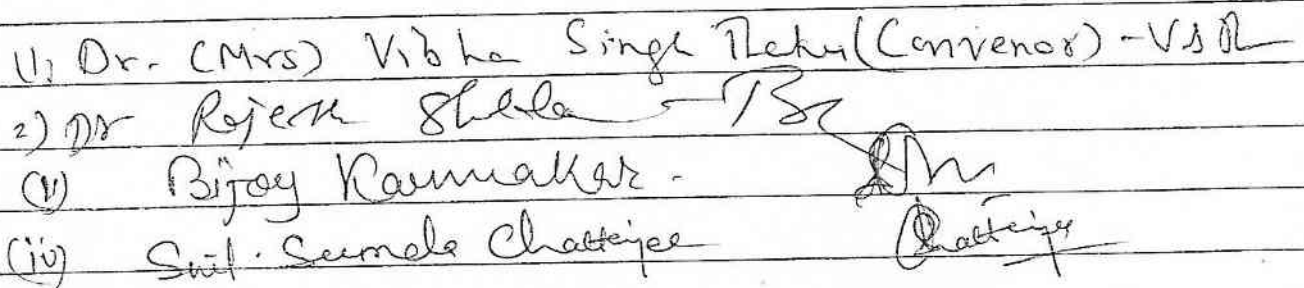 (1) Dr. (Mrs) Vibha Singh (Convenor) - VSR
2) Dr Rajesh Shukla
(v) Bijoy Karmakar.
(iv) Smt. Sumela Chatterjee Chatterjee